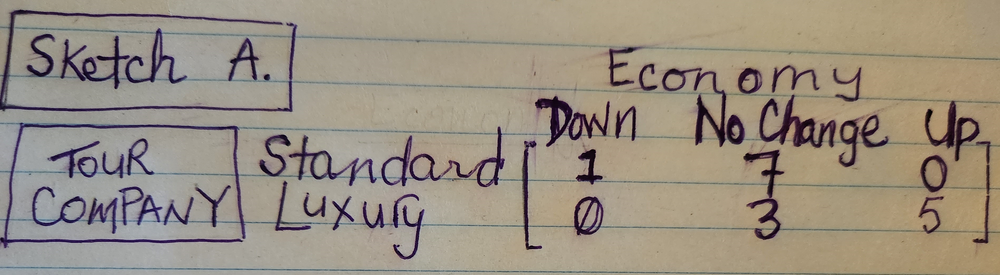 Sketch A.
Economy
Down No Change Up
TOUR COMPANY Standard [ 1 7 0
Luxury 0 3 5 ]